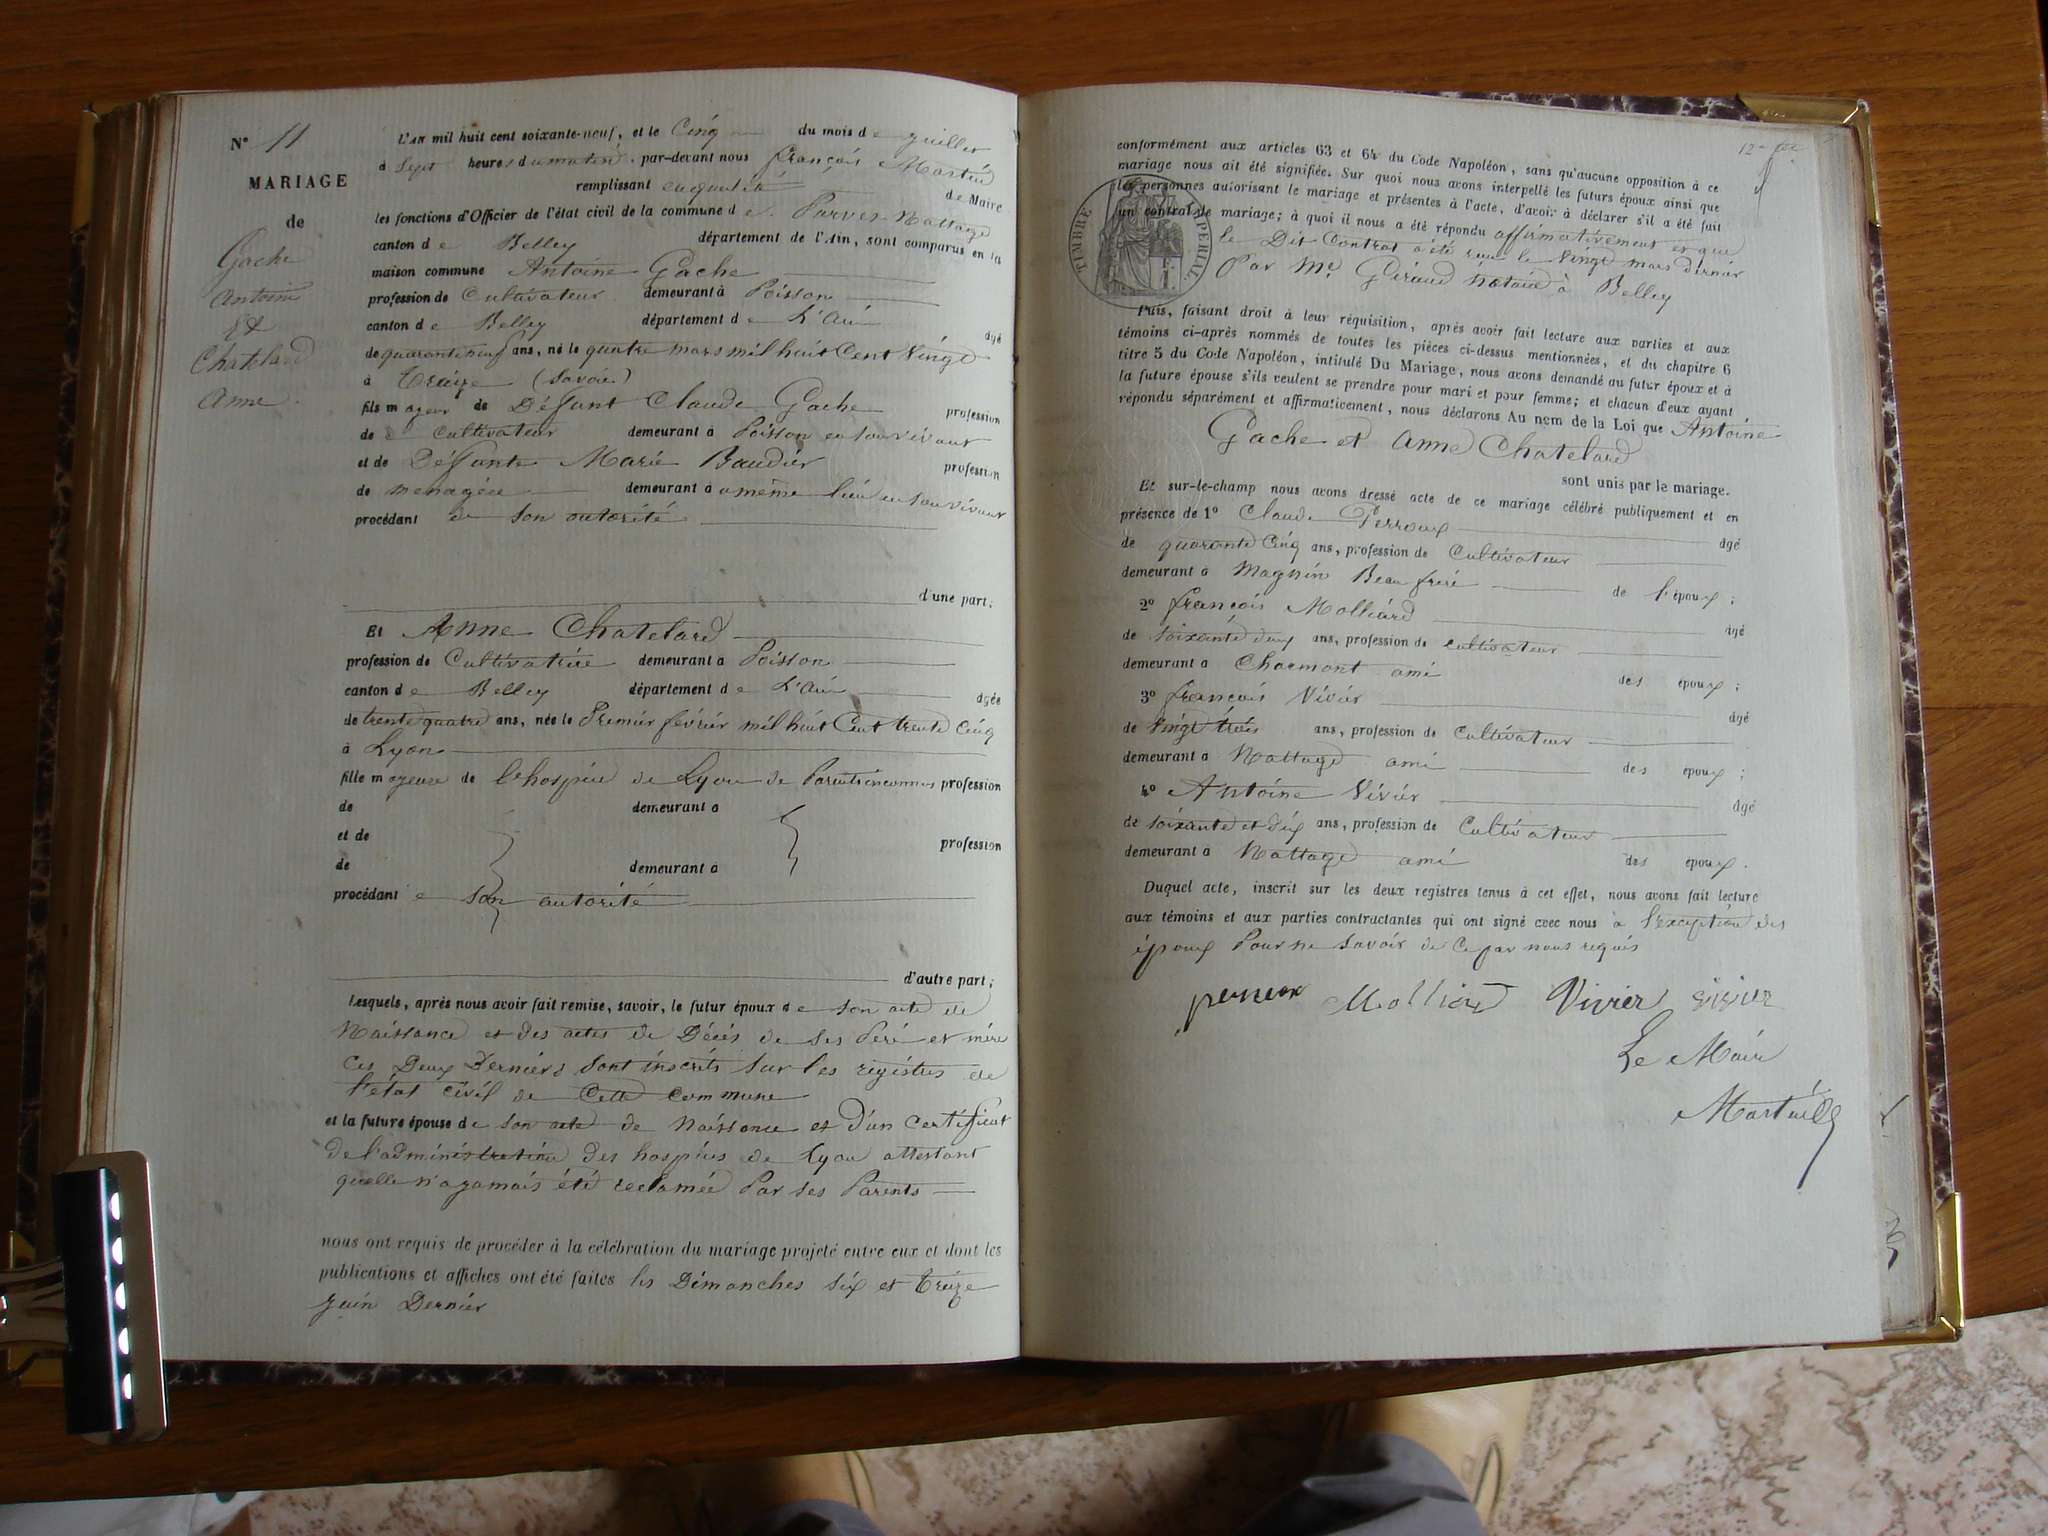 N° 11
MARIAGE
de
Gache
Antoine
Et
Chatelard
Anne.
L'AN mil huit cent soixante-neuf, et le Cinq du mois de juillet
à Sept heures du matin, par-devant nous françois Martin
remplissant en qualité de Maire
les fonctions d'Officier de l'état civil de la commune de Parves-Nattage
canton de Belley département de l'Ain, sont comparus en la
maison commune Antoine Gache
profession de Cultivateur demeurant à Poisson
canton de Belley département de L'Ain âgé
de quarante neuf ans, né le quatre mars mil huit Cent Vingt
à Traize (Savoie)
fils majeur de Déffunt Claude Gache profession
de Cultivateur demeurant à Poisson en son vivant
et de Déffunte Marie Baudier profession
de menagère demeurant a même lieu en son vivant
procédant de son autorité
d'une part;
Et Anne Chatelard
profession de Cultivatrice demeurant à Poisson
canton de Belley département de L'Ain âgée
de trente quatre ans, née le Premier février mil huit Cent trente Cinq
à Lyon
fille majeure de l'hospice de Lyon de Parents inconnus profession
de demeurant à
et de profession
de demeurant à
procédant de son autorité
d'autre part;
Lesquels, après nous avoir fait remise, savoir, le futur époux de son acte de
Naissance et des actes de Décès de ses Père et mère
Ces Deux Derniers sont inscrits sur les registres de
l'état civil de Cette commune
et la future épouse de son acte de Naissance et d'un Certificat
de l'administration des hospices de Lyon attestant
quelle n'a jamais été reclamée Par ses Parents
nous ont requis de procéder à la célébration du mariage projeté entre eux et dont les
publications et affiches ont été faites les Dimanches six et treize
juin Dernier
conformément aux articles 63 et 64 du Code Napoléon, sans qu'aucune opposition à ce
mariage nous ait été signifiée. Sur quoi nous avons interpellé les futurs époux ainsi que
les personnes autorisant le mariage et présentes à l'acte, d'avoir à déclarer s'il a été fait
un contrat de mariage; à quoi il nous a été répondu affirmativement et que
le Dit Contrat a été reçu le Vingt mars dernier
Par Me Giraud Notaire à Belley
TIMBRE IMPERIAL
Puis, faisant droit à leur réquisition, après avoir fait lecture aux parties et aux
témoins ci-après nommés de toutes les pièces ci-dessus mentionnées, et du chapitre 6
titre 5 du Code Napoléon, intitulé Du Mariage, nous avons demandé au futur époux et à
la future épouse s'ils veulent se prendre pour mari et pour femme; et chacun d'eux ayant
répondu séparément et affirmativement, nous déclarons Au nom de la Loi que Antoine
Gache et Anne Chatelard
sont unis par le mariage.
Et sur-le-champ nous avons dressé acte de ce mariage célébré publiquement et en
présence de 1° Claude Perroux âgé
de quarante Cinq ans, profession de Cultivateur
demeurant à Magnin Beau frère de l'époux;
2° françois Molliard âgé
de soixante deux ans, profession de cultivateur
demeurant à Charmont ami des époux;
3° françois Vivier âgé
de Vingt trois ans, profession de Cultivateur
demeurant à Nattage ami des époux;
4° Antoine Vivier âgé
de soixante et dix ans, profession de Cultivateur
demeurant à Nattage ami des époux.
Duquel acte, inscrit sur les deux registres tenus à cet effet, nous avons fait lecture
aux témoins et aux parties contractantes qui ont signé avec nous à l'exception des
époux Pour ne savoir de Ce par nous requis
perroux Molliard Vivier vivier
Le Maire
Martin